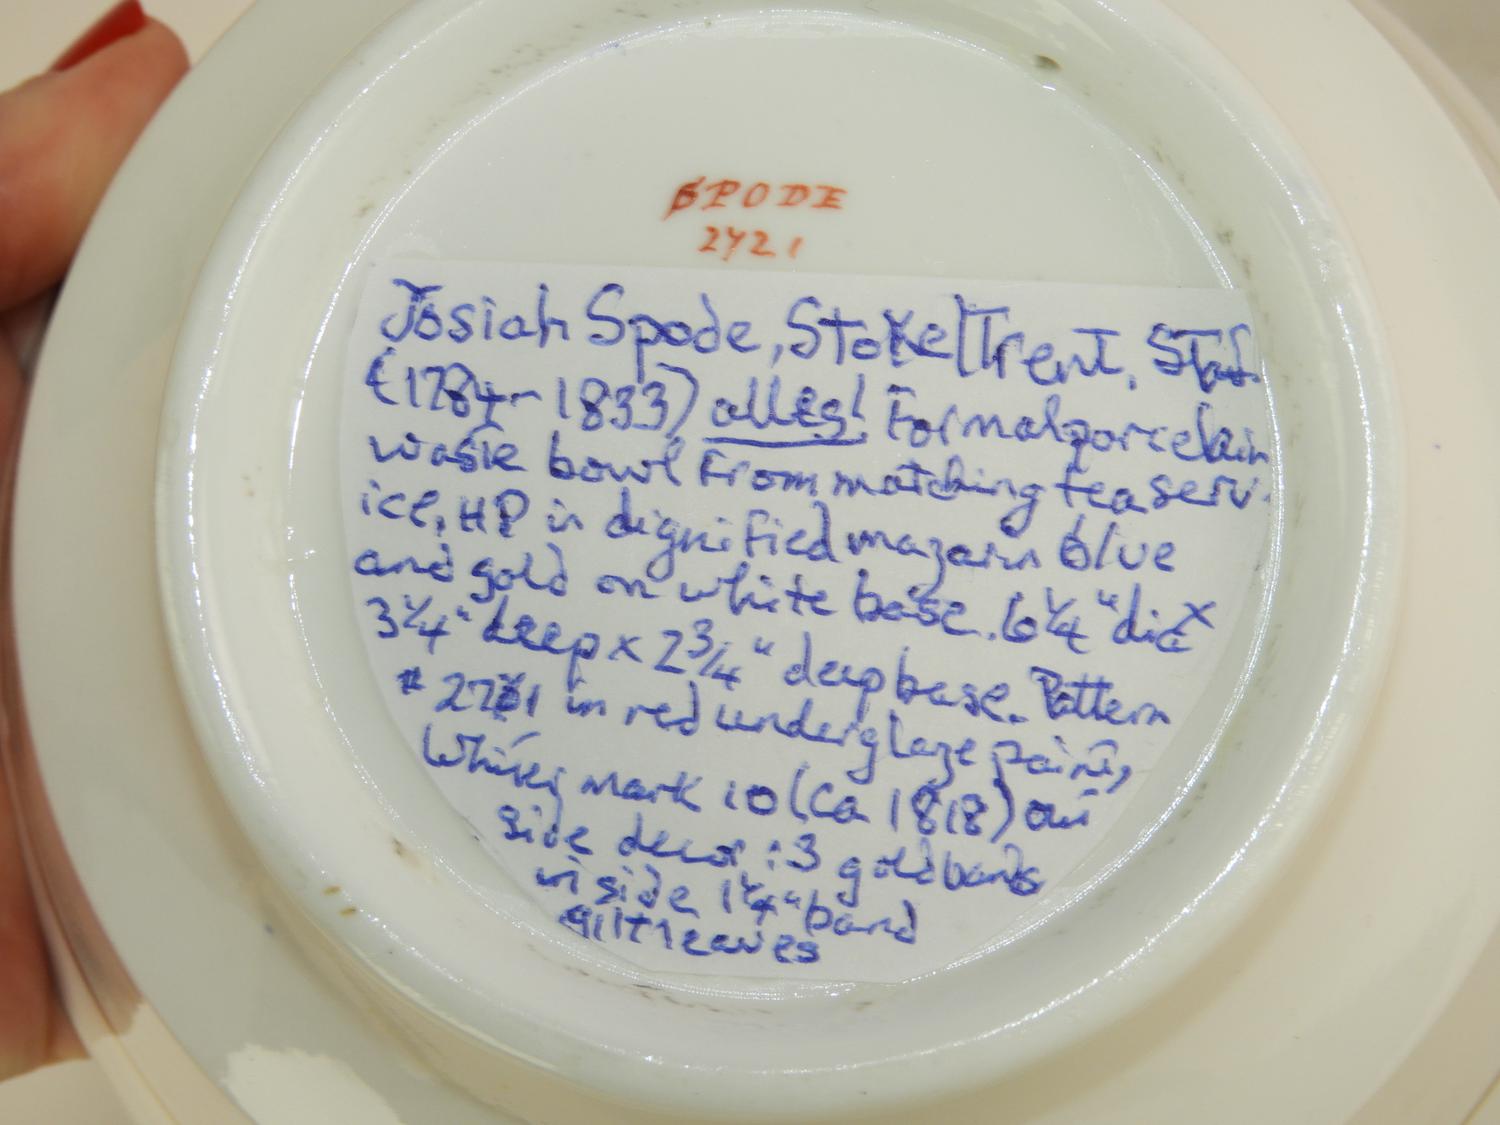 SPODE
2421
Josiah Spode, Stoke/Trent, Staf.
(1784-1833) alleg! Formal porcelain
waste bowl from matching tea serv-
ice, HP in dignified mazarin blue
and gold on white base. 6 1/4" dia x
3 1/4" deep x 2 3/4" deep base. Pattern
in red underglaze paint,
mark 10 (ca 1818) out
side decor: 3 gold bands
inside 1 1/4" band
gilt leaves